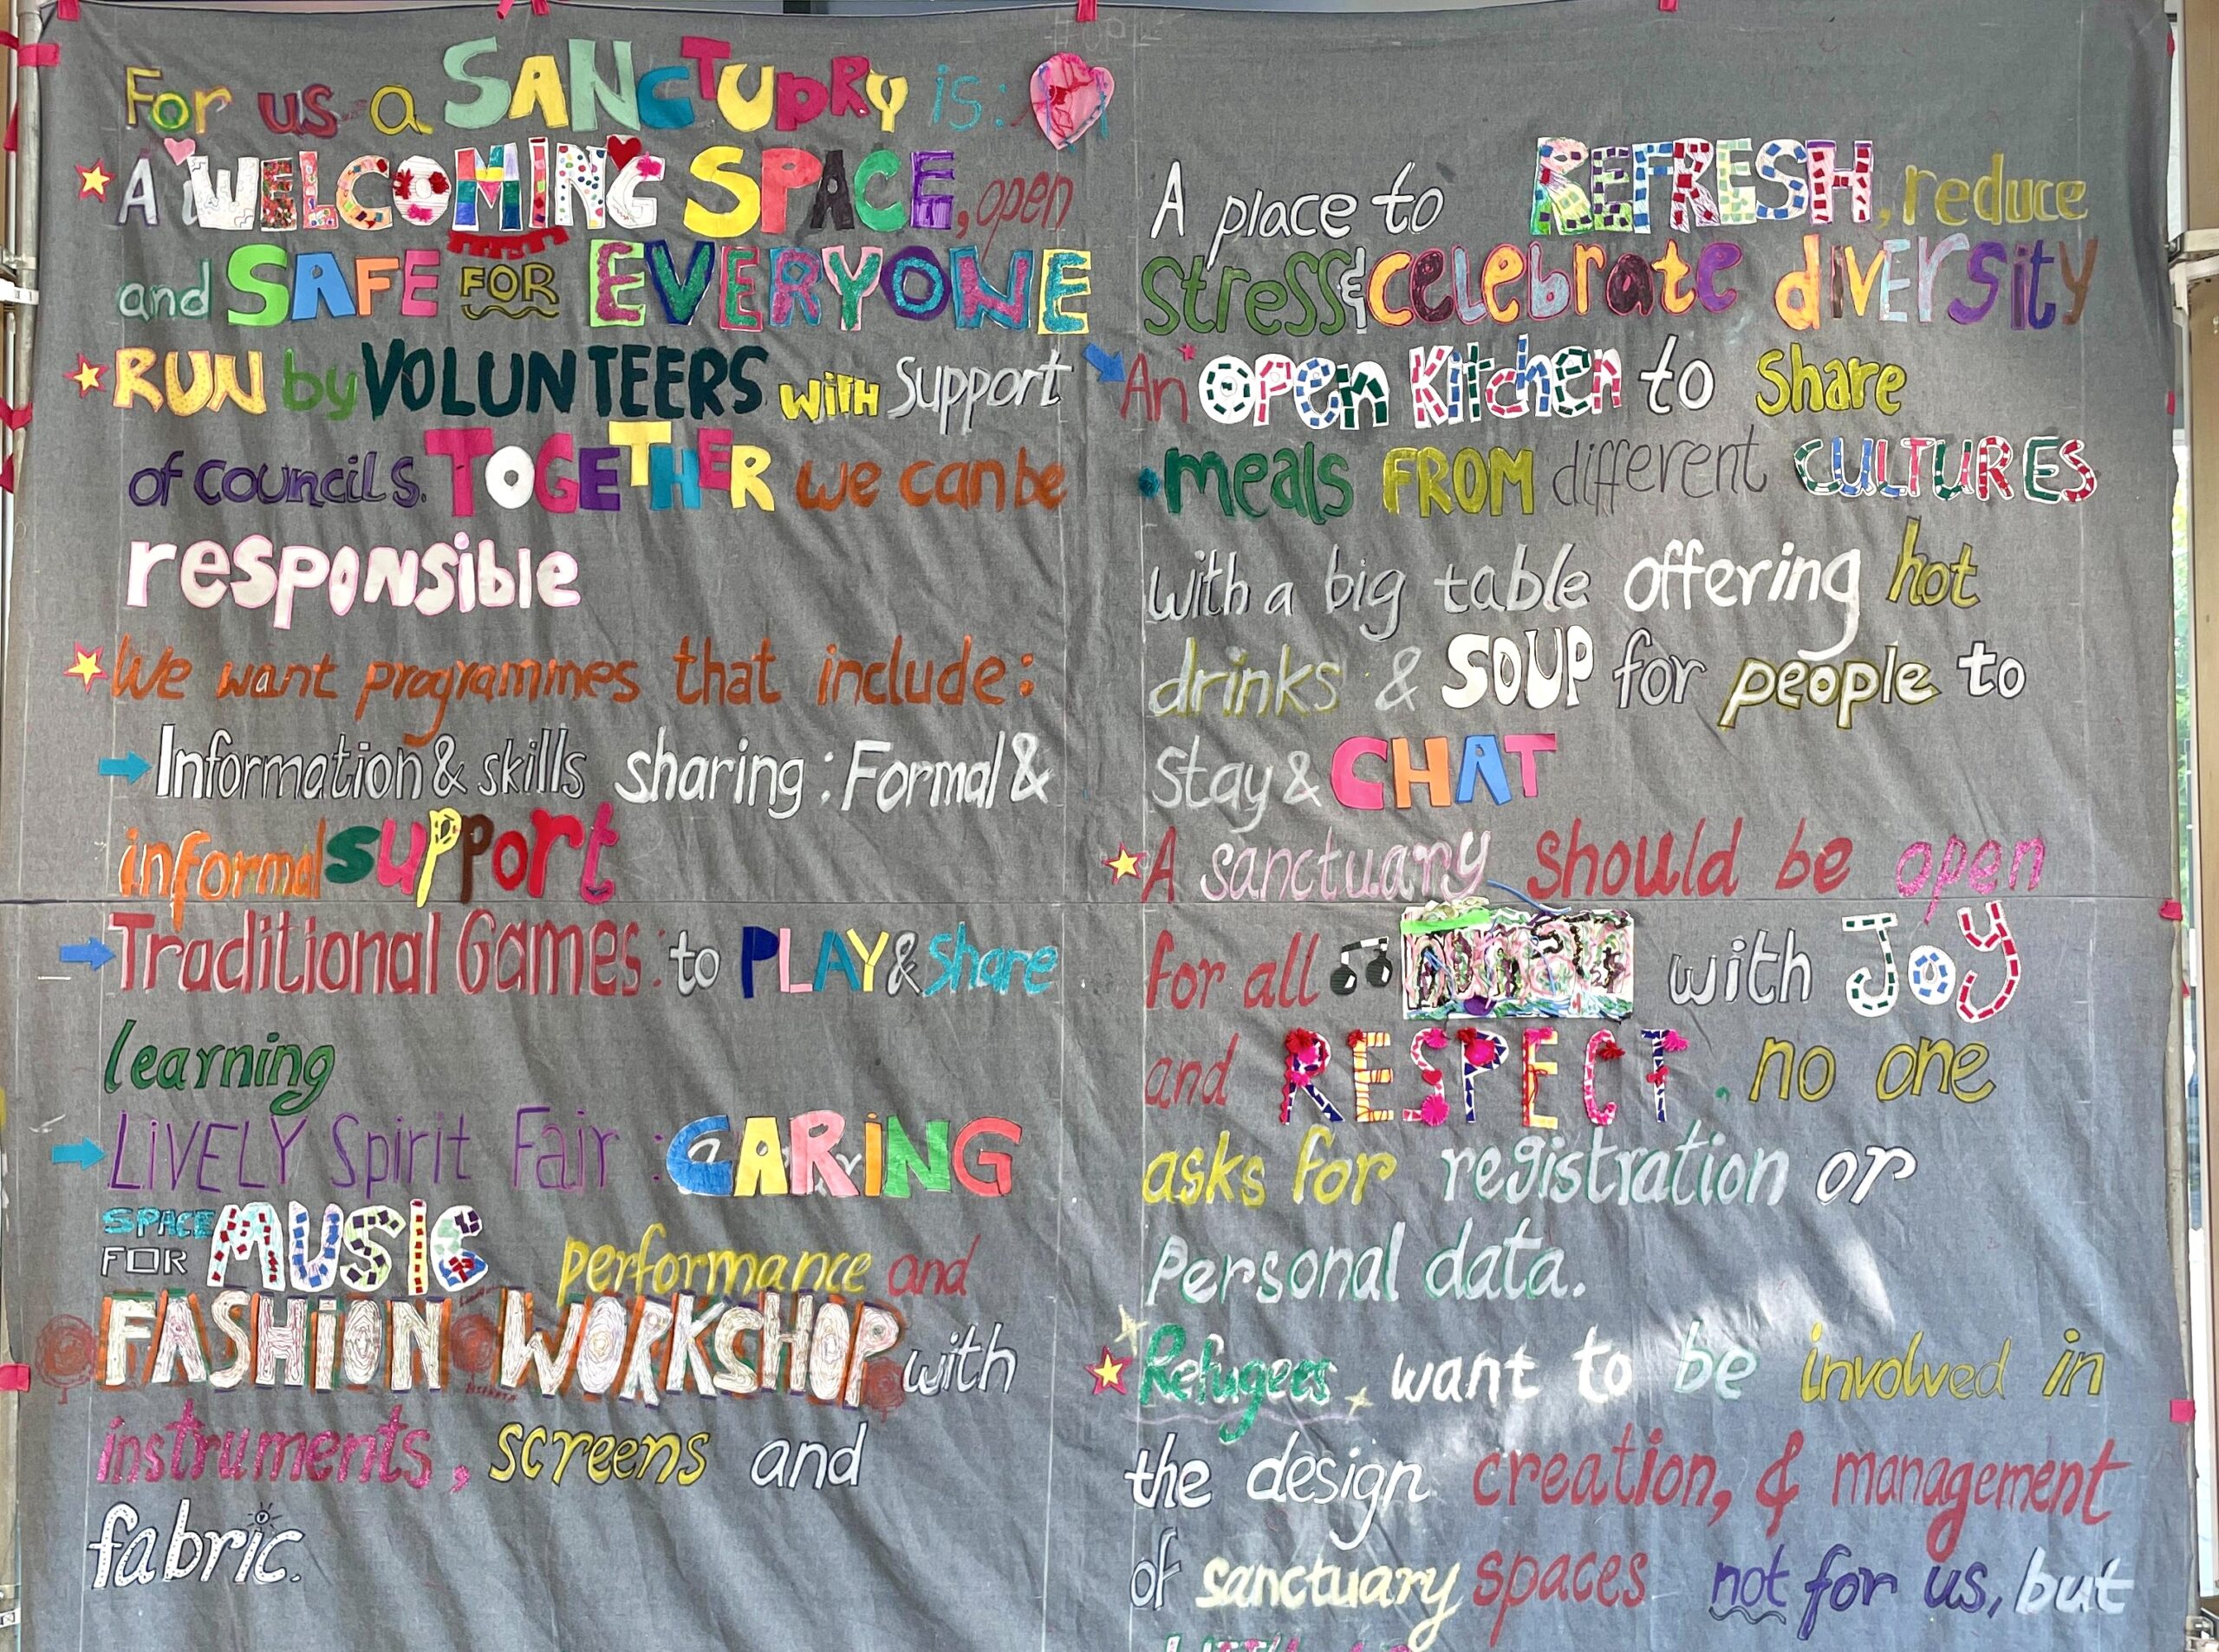 For us a SANCTUARY is:
A WELCOMING SPACE, open
and SAFE FOR EVERYONE
RUN by VOLUNTEERS WITH Support
of councils. TOGETHER we can be
responsible
We want programmes that include:
Information & skills sharing: Formal &
informal support
Traditional Games: to PLAY & share
learning
LIVELY Spirit Fair: CARING
SPACE FOR MUSIC performance and
FASHION WORKSHOP with
instruments, screens and
fabric.
A place to REFRESH, reduce
stress & celebrate diversity
An open Kitchen to share
meals FROM different CULTURES
with a big table offering hot
drinks & SOUP for people to
stay & CHAT
A sanctuary should be open
for all with JOY
and RESPECT. no one
asks for registration or
Personal data.
Refugees want to be involved in
the design creation, & management
of sanctuary spaces not for us, but